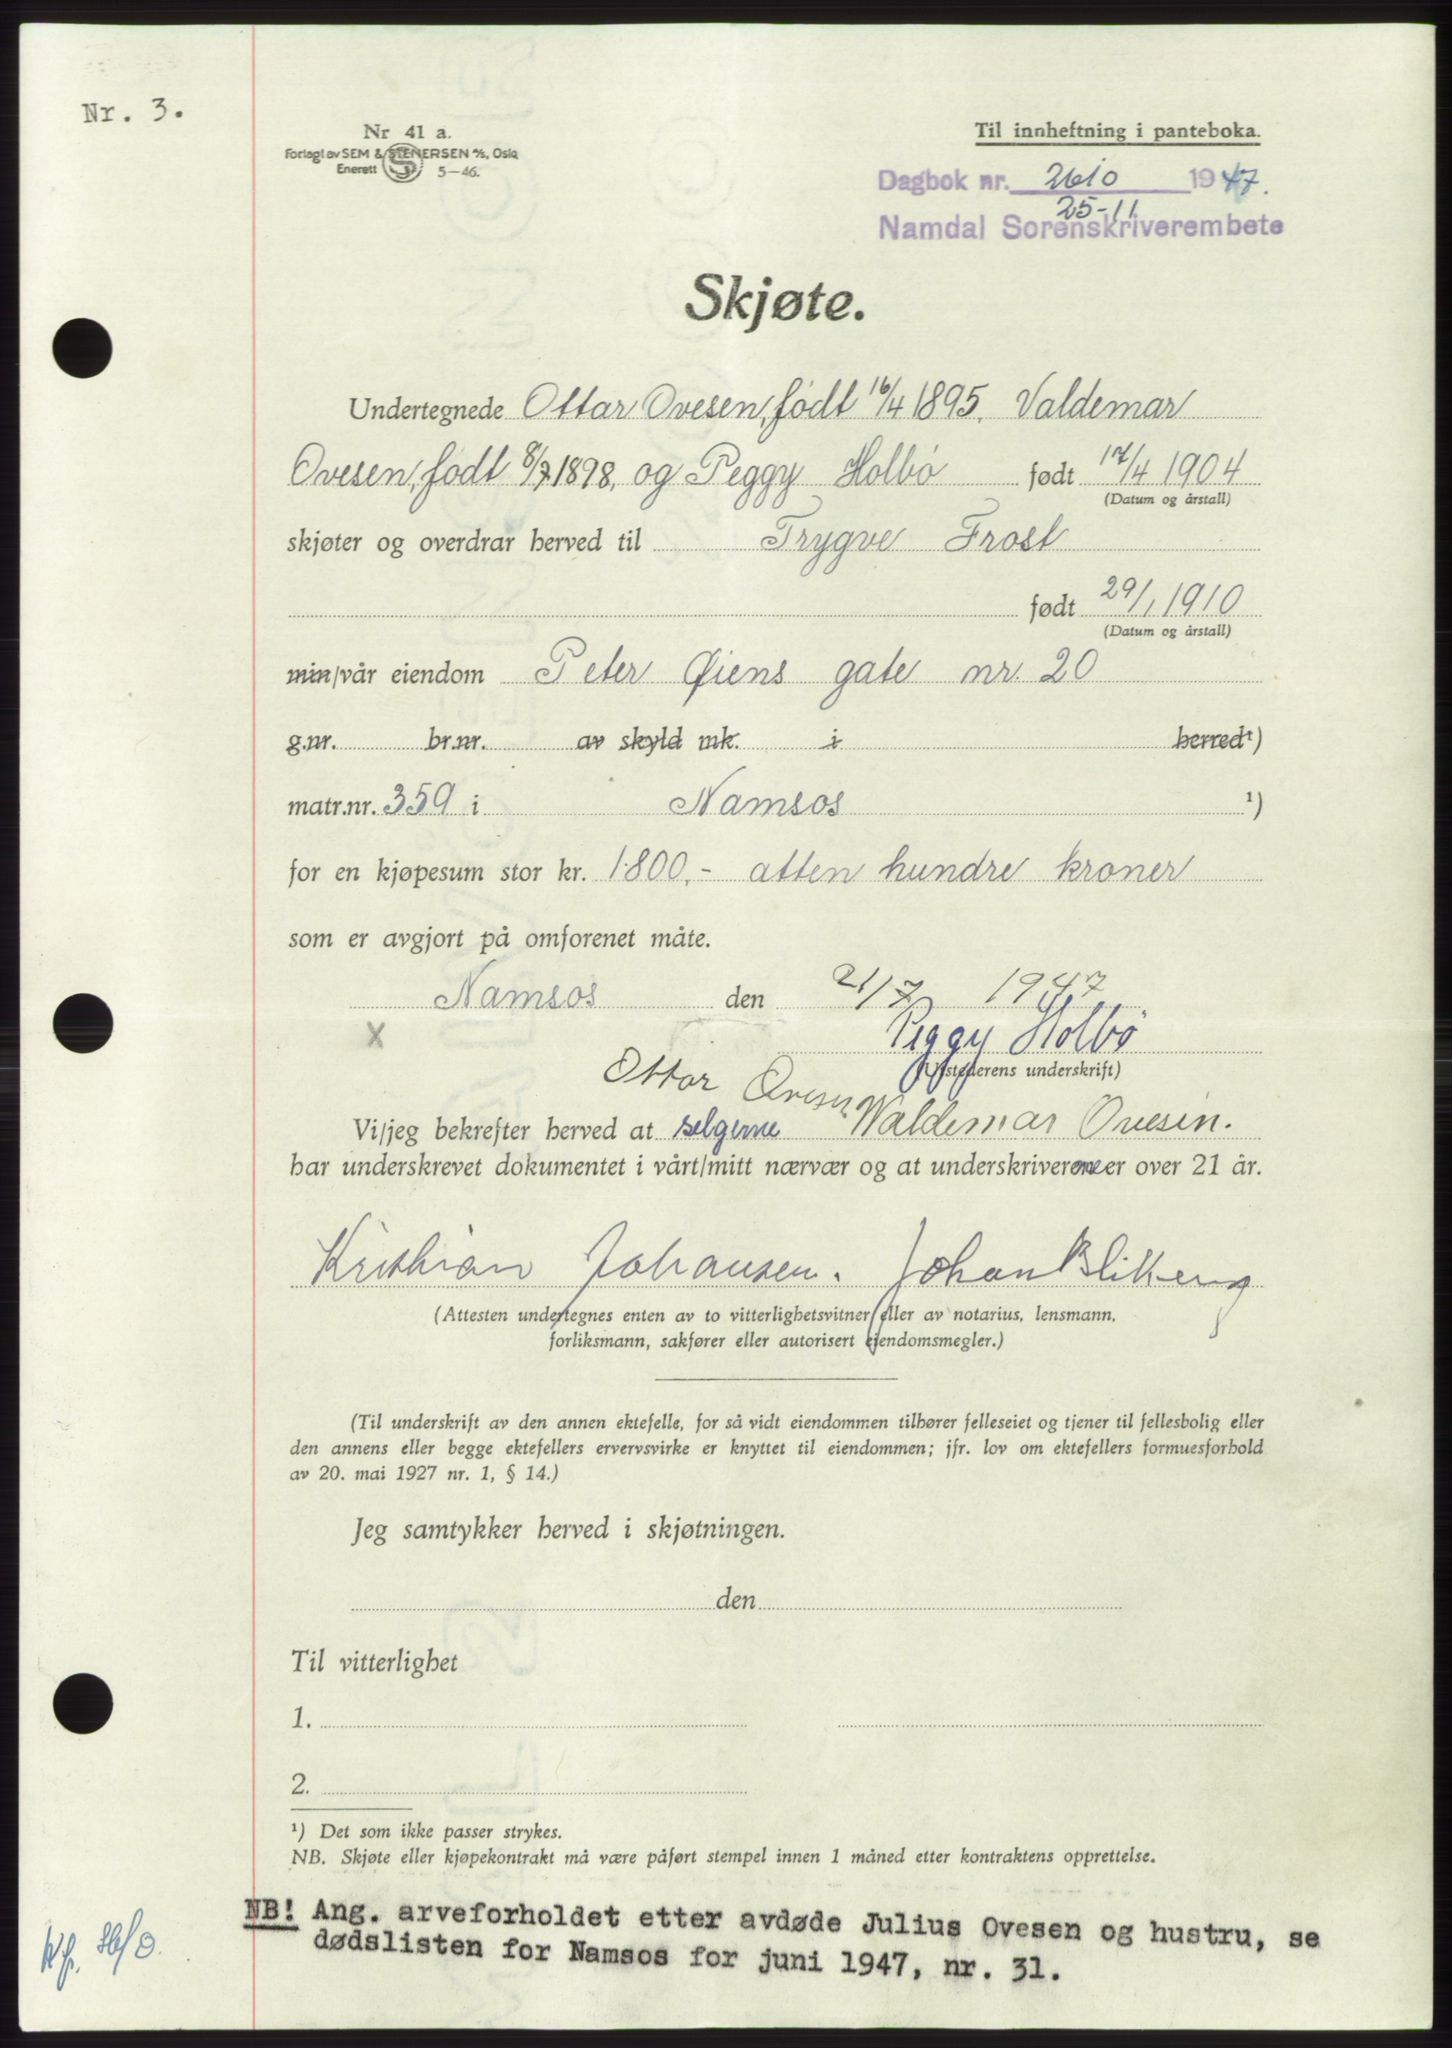 Nr. 3.
Nr 41 a.
Forlagt av SEM & STENERSEN A/S, Oslo
Enerett 5-46.
Til innheftning i panteboka.
Dagbok nr. 2610 1947.
25-11
Namdal Sorenskriverembete
Skjøte.
Undertegnede Ottar Ovesen, født 16/4 1895. Valdemar
Ovesen, født 8/7 1898, og Peggy Holbö født 17/4 1904
(Datum og årstall)
skjøter og overdrar herved til Trygve Frost
født 29/1 1910
(Datum og årstall)
min/vår eiendom Peter Øiens gate nr. 20
g.nr. br.nr. av skyld mk. i herred¹)
matr.nr. 359 i Namsos ¹)
for en kjøpesum stor kr. 1.800,- atten hundre kroner
som er avgjort på omforenet måte.
Namsos den 21/7 1947
X Peggy Holbö
(Utstederens underskrift)
Ottar Ovesen Waldemar Ovesen.
Vi/jeg bekrefter herved at selgerne
har underskrevet dokumentet i vårt/mitt nærvær og at underskriverne er over 21 år.
Kristian Johansen. Johan Blikeng
(Attesten undertegnes enten av to vitterlighetsvitner eller av notarius, lensmann,
forliksmann, sakfører eller autorisert eiendomsmegler.)
(Til underskrift av den annen ektefelle, for så vidt eiendommen tilhører felleseiet og tjener til fellesbolig eller
den annens eller begge ektefellers ervervsvirke er knyttet til eiendommen; jfr. lov om ektefellers formuesforhold
av 20. mai 1927 nr. 1, § 14.)
Jeg samtykker herved i skjøtningen.
den
Til vitterlighet
1.
2.
¹) Det som ikke passer strykes.
NB. Skjøte eller kjøpekontrakt må være påført stempel innen 1 måned etter kontraktens opprettelse.
NB! Ang. arveforholdet etter avdøde Julius Ovesen og hustru, se
dødslisten for Namsos for juni 1947, nr. 31.